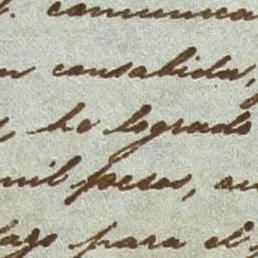 comunica
consabida,
he logrado
mil pesos,
para el